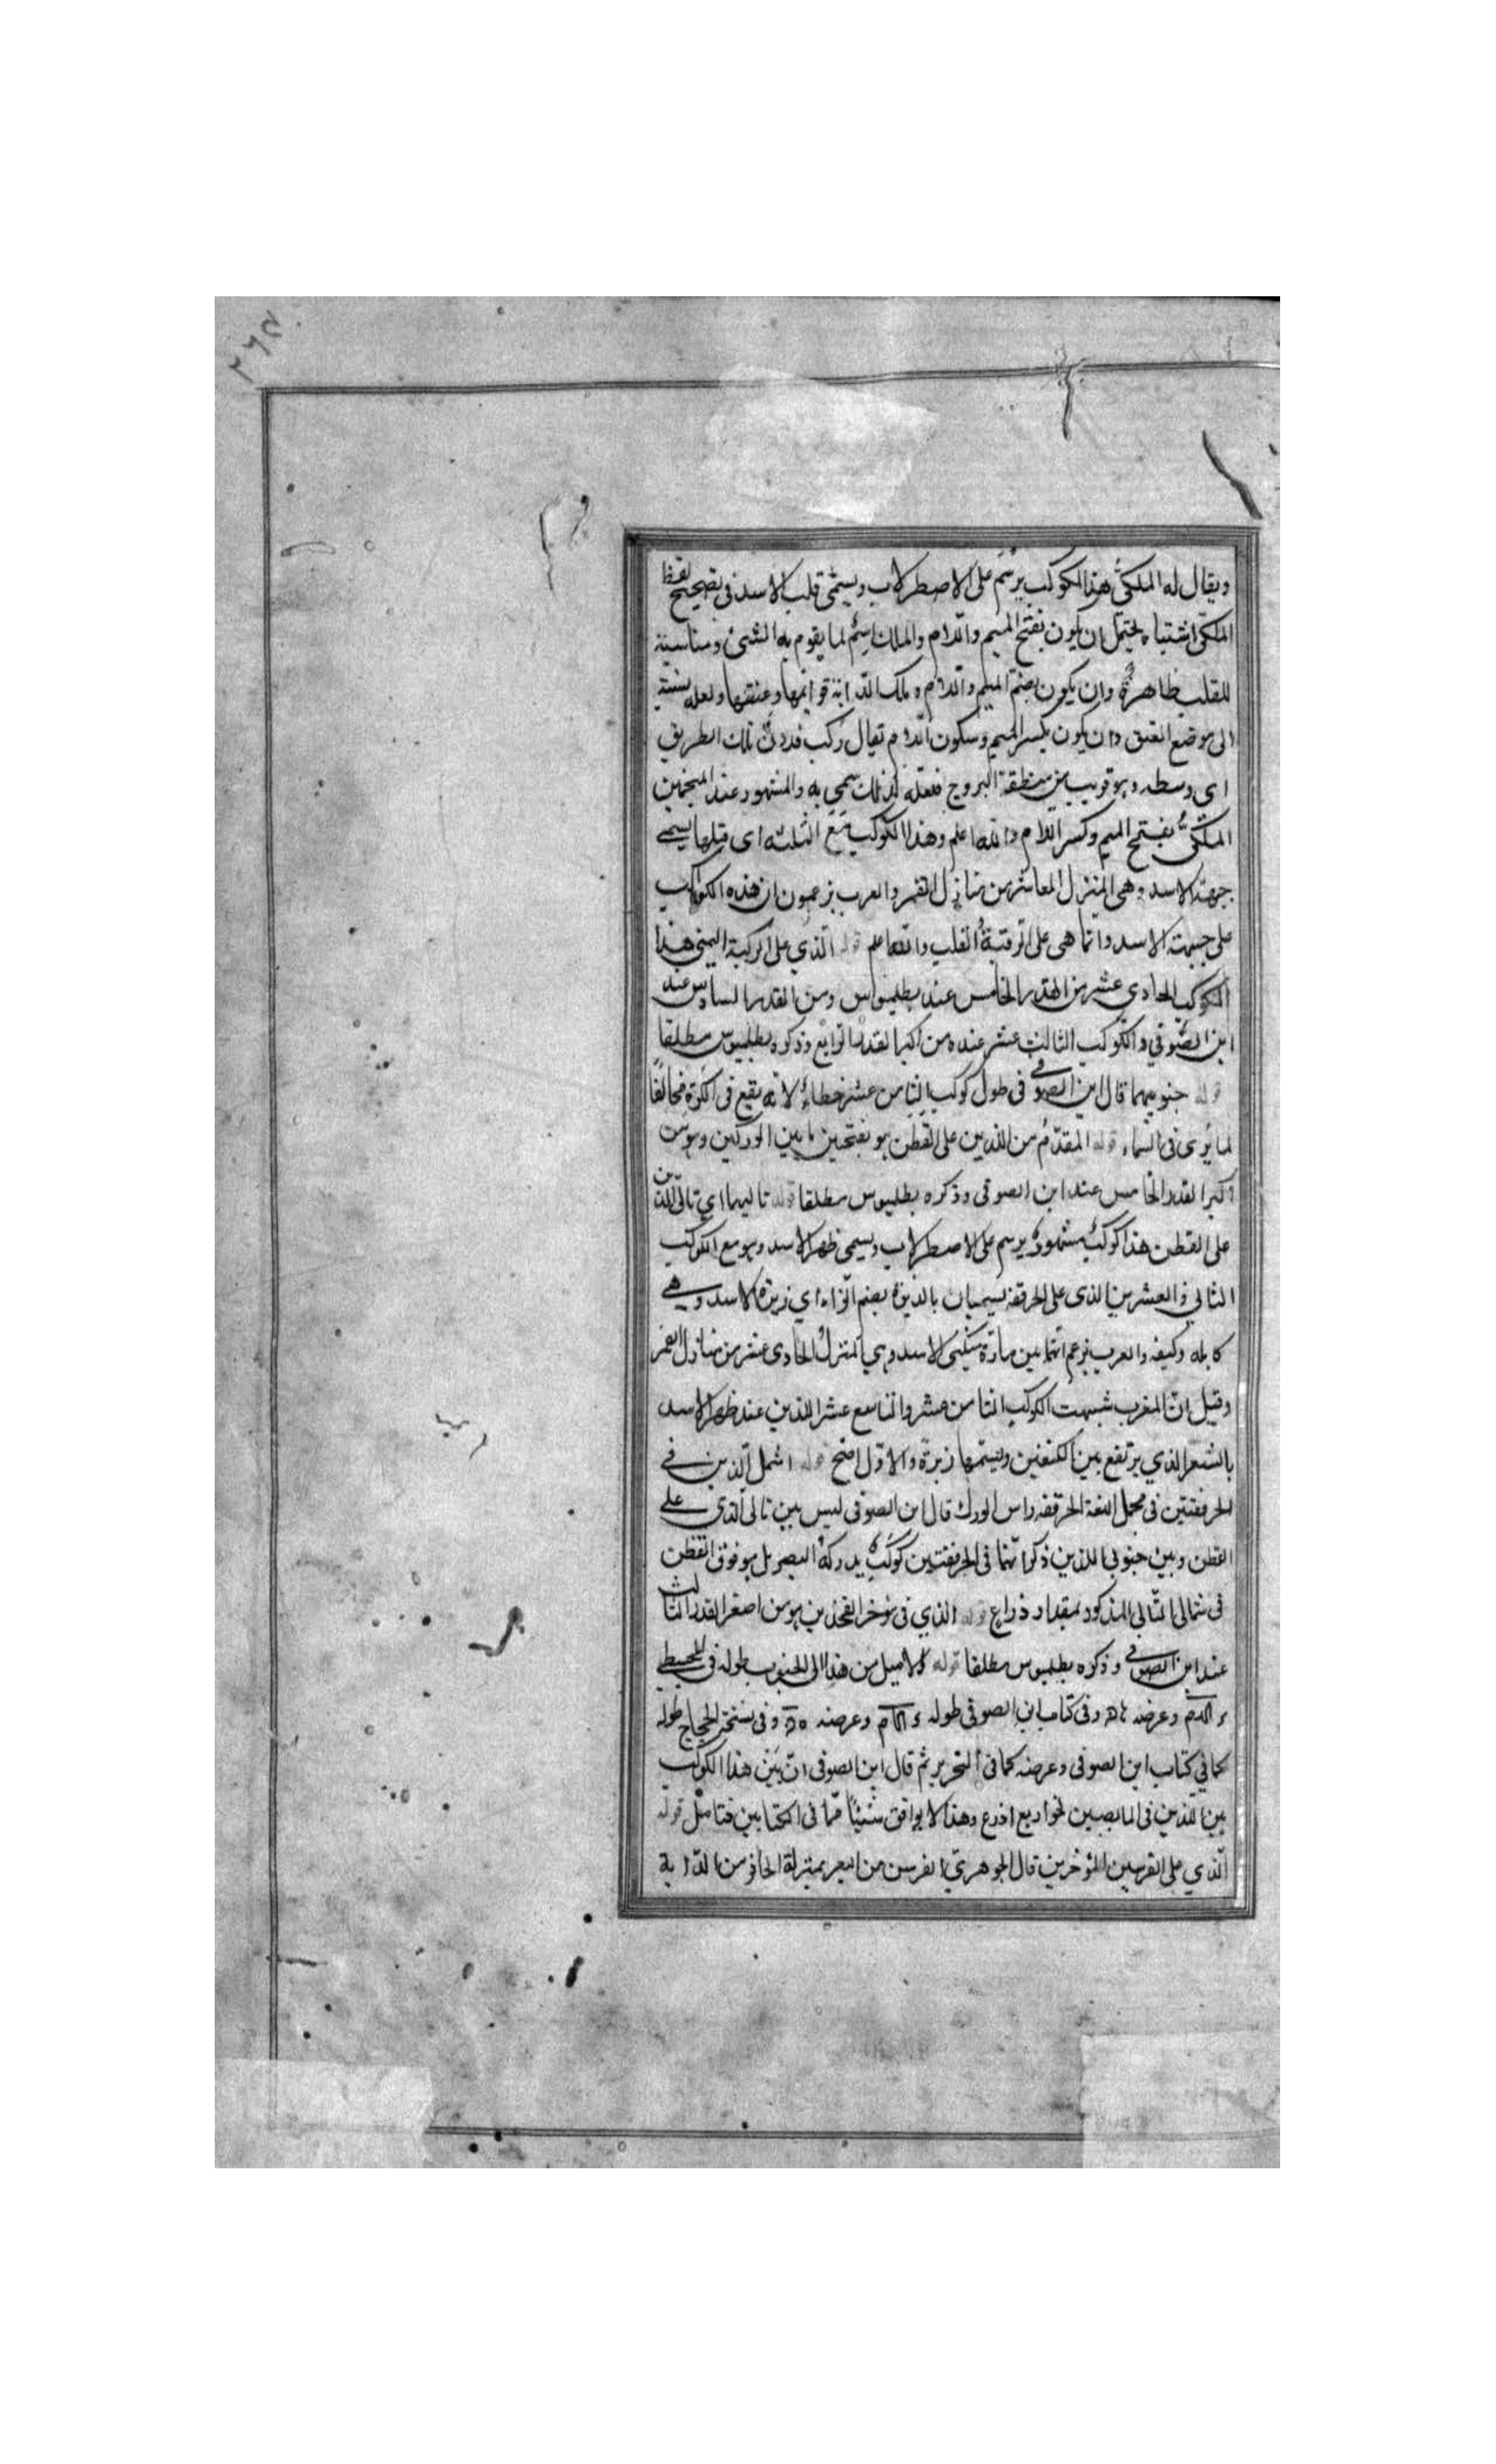 ٢٦٤
ويقال له الملكي هذا الكوكب يرسم على الاصطرلاب ويسمى قلب الاسد في تصحيح لفظ
الملكي اشتباه يحتمل ان يكون بفتح الميم واللام والملك اسم لما يقوم به الشئ ومناسبته
للقلب ظاهرة وان يكون بضم الميم واللام وملك الدابة قوائمها وعنقها ولعله نسبة
الى موضع العنق وان يكون بكسر الميم وسكون اللام تقال ركب فددن ملك الطريق
اي وسطه وهو قريب من منطقة البروج فعله لذلك سمي به والمشهور عند المنجمين
الملكي بفتح الميم وكسر اللام والله اعلم وهذا الكوكب مع الثلثة اى قبلها يسمى
جبهة الاسد وهي المنزل العاشر من منازل القمر والعرب يزعمون ان هذه الكواكب
على جبهة الاسد وانما هي على الرقبة والقلب والله اعلم قوله الذي على الركبة اليمنى هذا
الكوكب الحادي عشر من القدر الخامس عند بطلميوس ومن القدر السادس عند
ابن الصوفي والكوكب الثالث عشر عنده من اكبر القدر الرابع وذكره بطلميوس مطلقا
قوله جنوبيهما قال ابن الصوفي فى طول كوكب الثامن عشر خطاء لانه يقع فى الكرة مخالفا
لما يرى فى السماء قوله المقدم من اللذين على القطن هو بفتحين ما بين الوركين وهو من
اكبر القدر الخامس عند ابن الصوفى وذكره بطلميوس مطلقا قوله تاليهما اي تالي اللذين
على القطن هذا كوكب مشهور يرسم على الاصطرلاب ويسمى ظهر الاسد وهو مع الكوكب
الثاني والعشرين الذى على الحرقفة يسميان بالزبرة بضم الزاء اي زبرة الاسد وهي
كاهله وكتفه والعرب يزعم انهما بين مارة منكبى الاسد وهي المنزل الحادى عشر من منازل القمر
وقيل ان المغرب شبهت الكوكب الثامن عشر والتاسع عشر اللذين عند ظهر الاسد
بالشعر الذي يرتفع بين الكتفين ويسميها زبرة والاول اصح قوله اشمل اللذين في
الحرقفتين فى مجمل اللغة الحرقفة راس الورك قال ابن الصوفى ليس بين تالى الذى على
القطن وبين جنوبى اللذين ذكر انهما فى الحرقفتين كوكب يدركه البصر بل هو فوق القطن
فى شمالى التالي المذكور بمقدار ذراع قوله الذي فى مؤخر الفخذين هو من اصغر القدر الثالث
عند ابن الصوفي وذكره بطلميوس مطلقا قوله الاميل من هذا الى الجنوب طوله فى المجسطي
وعرضه وفى كتاب ابن الصوفى طوله وعرضه وفى نسخة الحجاج طوله
كما في كتاب ابن الصوفى وعرضه كما فى التحرير ثم قال ابن الصوفى ان بين هذا الكوكب
بين اللذين فى المابضين نحو اربع اذرع وهذا لا يوافق شيئا مما فى الكتابين فتامل قوله
الذي على الفرسين المؤخرين قال الجوهري الفرسن من البعير بمنزلة الحافر من الدابة